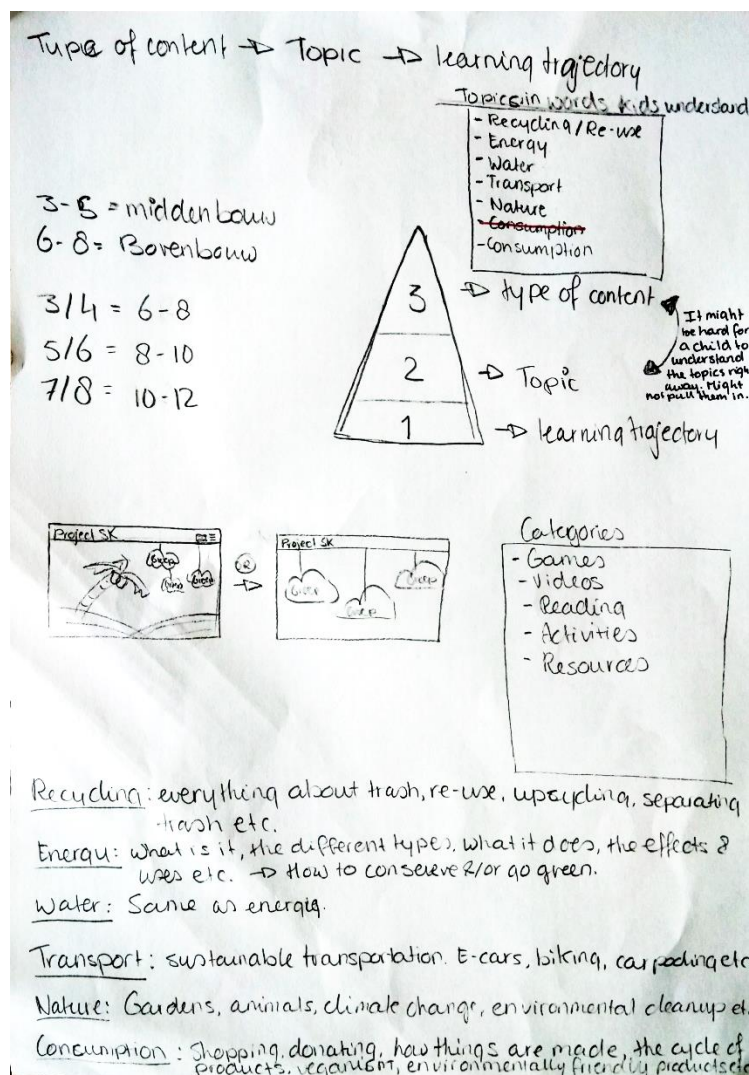 Type of content → Topic → learning trajectory
Topics in words kids understand
- Recycling / Re-use
- Energy
- Water
- Transport
- Nature
- Consumption
- Consumption
3-5 = middenbouw
6-8 = Bovenbouw
3/4 = 6-8
5/6 = 8-10
7/8 = 10-12
3 → type of content
2 → Topic
1 → learning trajectory
It might
be hard for
a child to
understand
the topics right
away. Might
not pull them in.
Project SK
Groep
Groep
Groep
OR
→
Project SK
Groep
Groep
Groep
Categories
- Games
- Videos
- Reading
- Activities
- Resources
Recycling: everything about trash, re-use, upcycling, separating
trash etc.
Energy: what is it, the different types, what it does, the effects &
uses etc. → How to conserve &/or go green.
Water: Same as energy.
Transport: sustainable transportation. E-cars, biking, carpooling etc
Nature: Gardens, animals, climate change, environmental cleanup et
Consumption: Shopping, donating, how things are made, the cycle of
products, veganism, environmentally friendly products etc